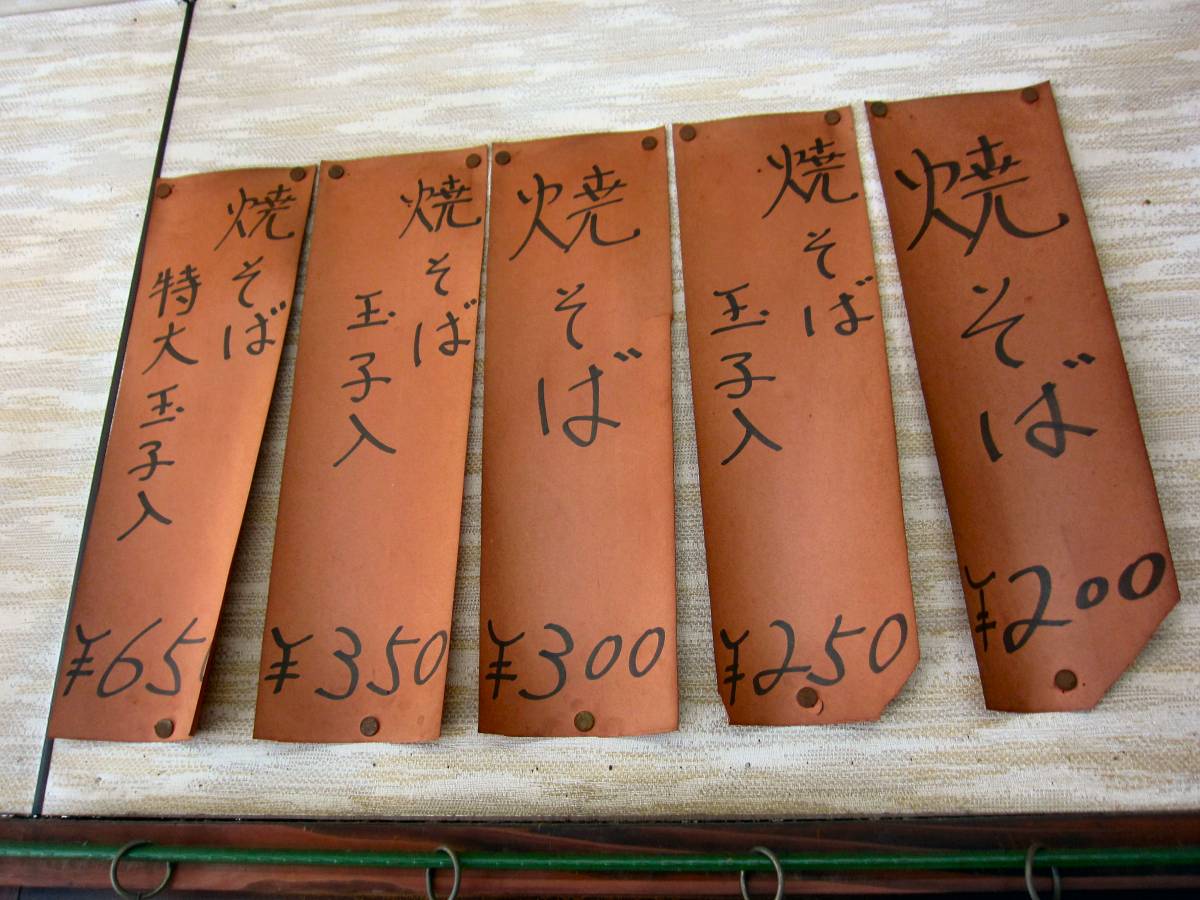 焼そば
¥200
焼そば
玉子入
¥250
焼そば
¥300
焼そば
玉子入
¥350
焼そば
特大玉子入
¥65